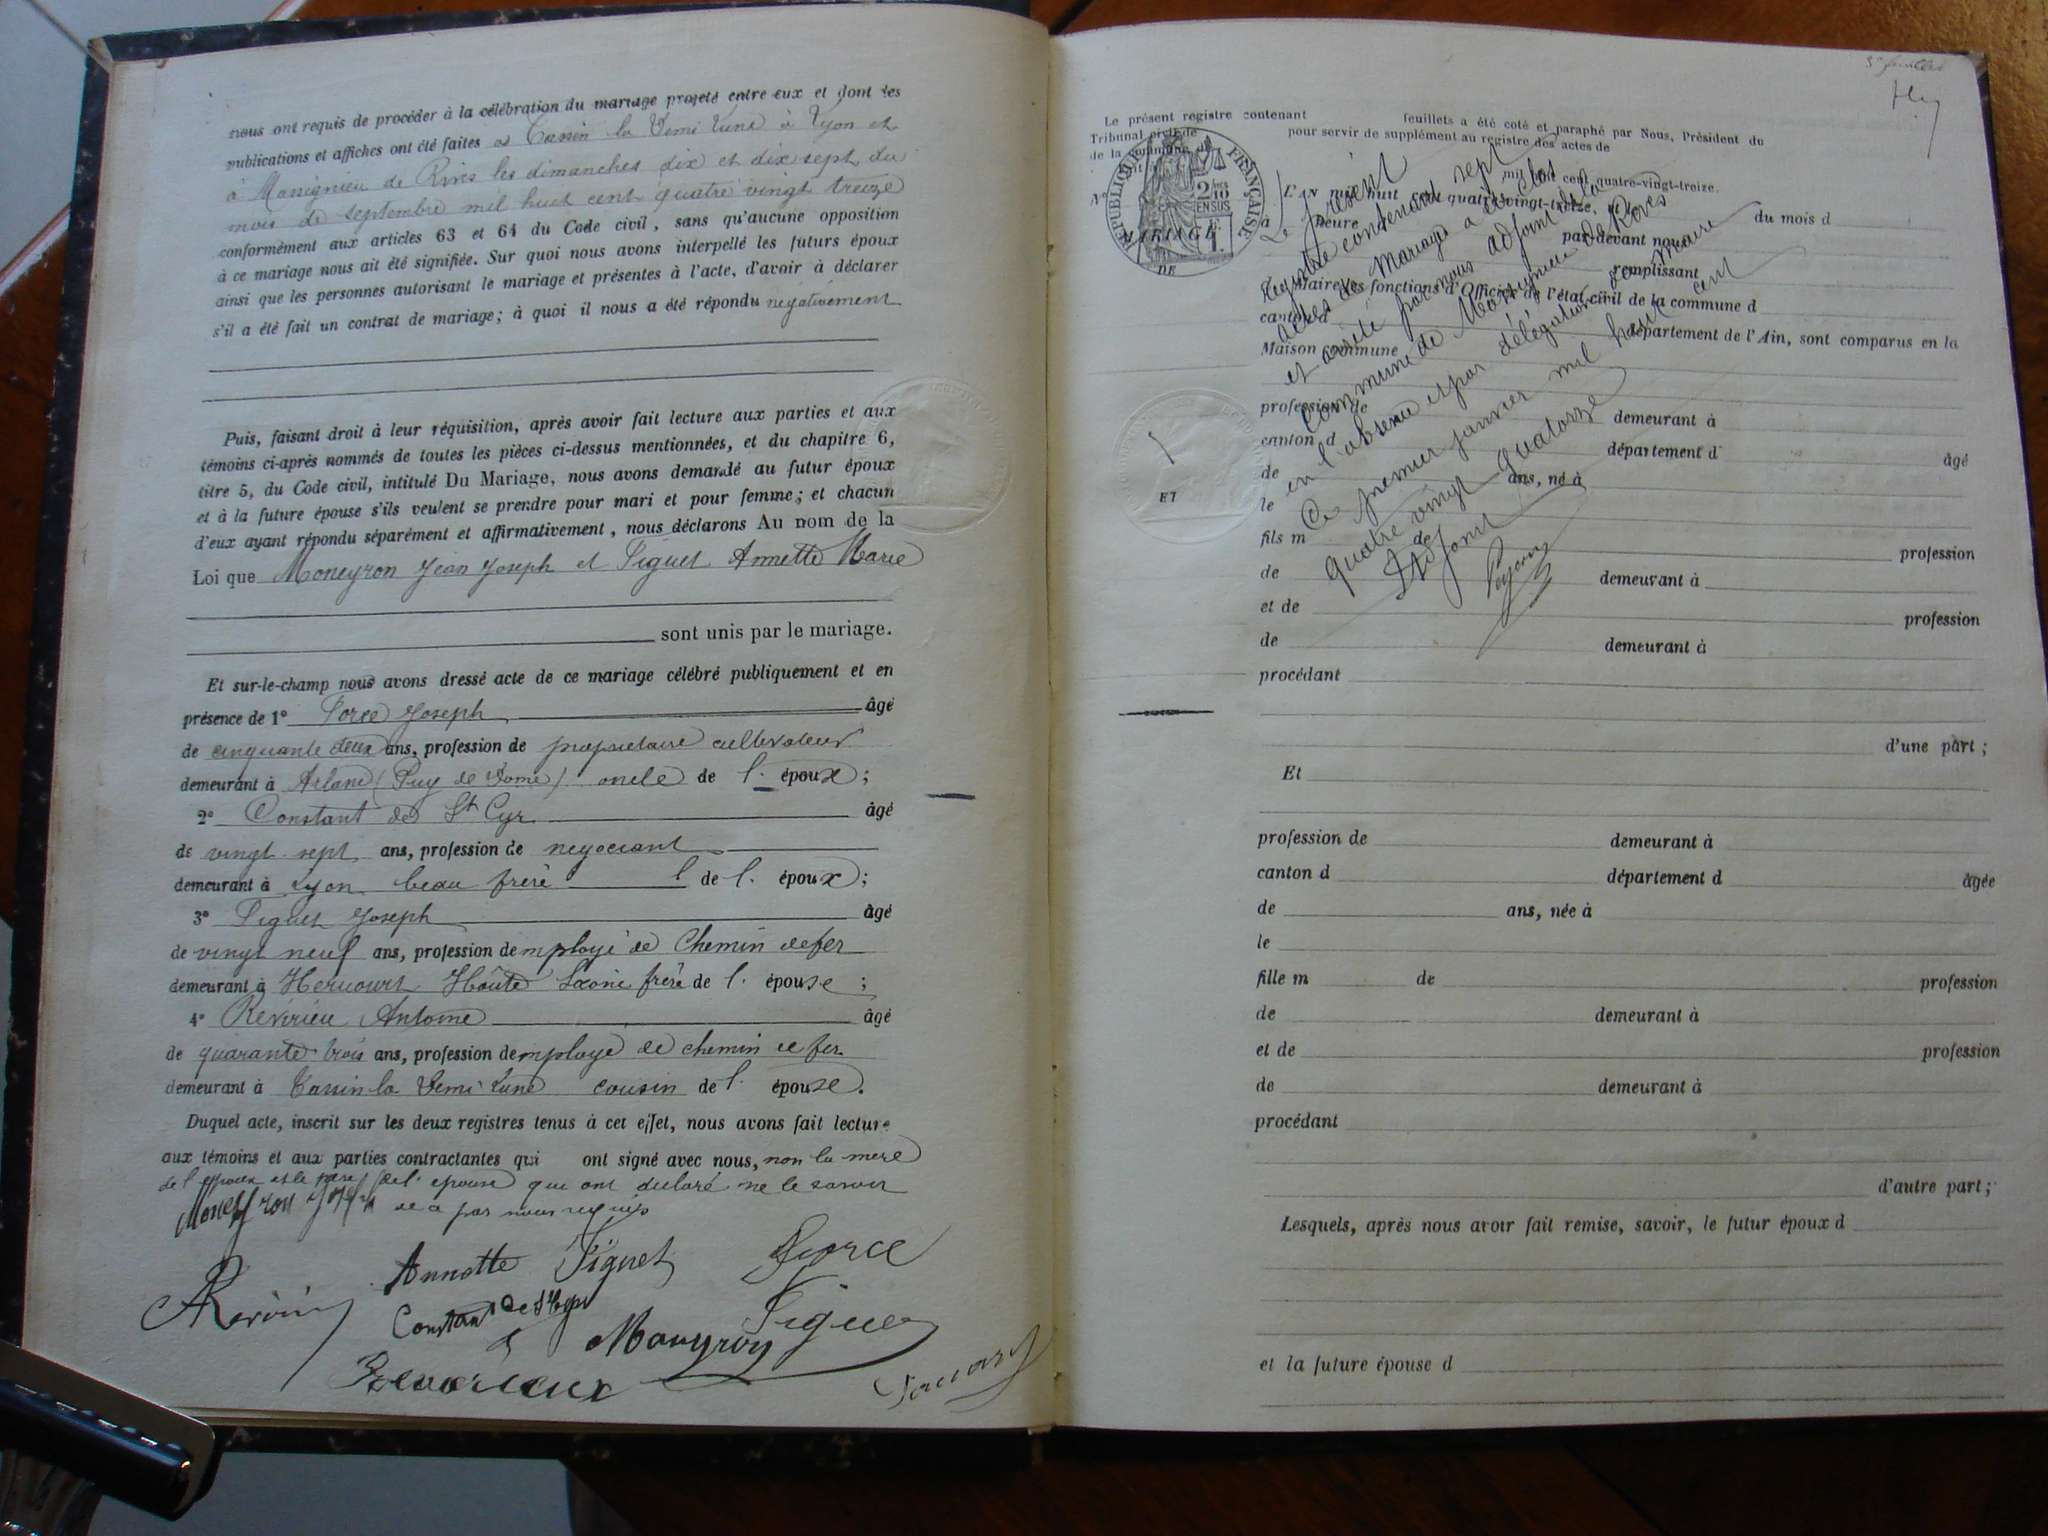 nous ont requis de procéder à la célébration du mariage projeté entre eux et dont les
publications et affiches ont été faites à Tassin la Demi Lune à Lyon et
à Massignieu de Rives les dimanches dix et dix sept du
mois de septembre mil huit cent quatre vingt treize
conformément aux articles 63 et 64 du Code civil, sans qu'aucune opposition
à ce mariage nous ait été signifiée. Sur quoi nous avons interpellé les futurs époux
ainsi que les personnes autorisant le mariage et présentes à l'acte, d'avoir à déclarer
s'il a été fait un contrat de mariage; à quoi il nous a été répondu négativement
Puis, faisant droit à leur réquisition, après avoir fait lecture aux parties et aux
témoins ci-après nommés de toutes les pièces ci-dessus mentionnées, et du chapitre 6,
titre 5, du Code civil, intitulé Du Mariage, nous avons demandé au futur époux
et à la future épouse s'ils veulent se prendre pour mari et pour femme; et chacun
d'eux ayant répondu séparément et affirmativement, nous déclarons Au nom de la
Loi que Moneyron Jean Joseph et Piguet Annette Marie
sont unis par le mariage.
Et sur-le-champ nous avons dressé acte de ce mariage célébré publiquement et en
présence de 1° Joseph âgé
de cinquante deux ans, profession de propriétaire cultivateur
demeurant à Arlanc (Puy de Dome) oncle de l. époux;
2° Constant de St Cyr âgé
de vingt sept ans, profession de négociant
demeurant à Lyon beau frère de l. époux;
3° Piguet Joseph âgé
de vingt neuf ans, profession d'employé de Chemin de fer
demeurant à Hericourt Haute Saône frère de l. épouse;
4° Révérieu Antoine âgé
de quarante trois ans, profession d'employé de chemin de fer
demeurant à Tassin la Demi Lune cousin de l. épouse.
Duquel acte, inscrit sur les deux registres tenus à cet effet, nous avons fait lecture
aux témoins et aux parties contractantes qui ont signé avec nous, non la mère
de l'époux et le père de l'épouse qui ont déclaré ne le savoir
de ce par nous requis
Annette Piguet
Constant de St Cyr
Piguet
3e feuillet
Le présent registre contenant feuillets a été coté et paraphé par Nous, Président du
Tribunal civil de pour servir de supplément au registre des actes de
de la commune d
mil huit cent quatre-vingt-treize.
RÉPUBLIQUE FRANÇAISE
2/10 EN SUS
N°
MARIAGE
DE
ET
L'AN mil huit cent quatre-vingt-treize, du mois d
à heure par-devant nous
remplissant
Maire les fonctions d'Officier de l'état civil de la commune d
canton d département de l'Ain, sont comparus en la
Maison commune
profession de demeurant à
canton d département d âgé
de ans, né à
le
fils m de profession
de demeurant à
et de profession
de demeurant à
procédant
d'une part;
Et
profession de demeurant à
canton d département d âgée
de ans, née à
le
fille m de profession
de demeurant à
et de profession
de demeurant à
procédant
d'autre part;
Lesquels, après nous avoir fait remise, savoir, le futur époux d
et la future épouse d
Le présent
registre contenant sept
actes de Mariages a été clos
et arrêté par nous adjoint de la
Commune de Massignieu de Rives
en l'absence et par délégation du Maire
Ce premier janvier mil huit cent
quatre vingt quatorze
L'Adjoint